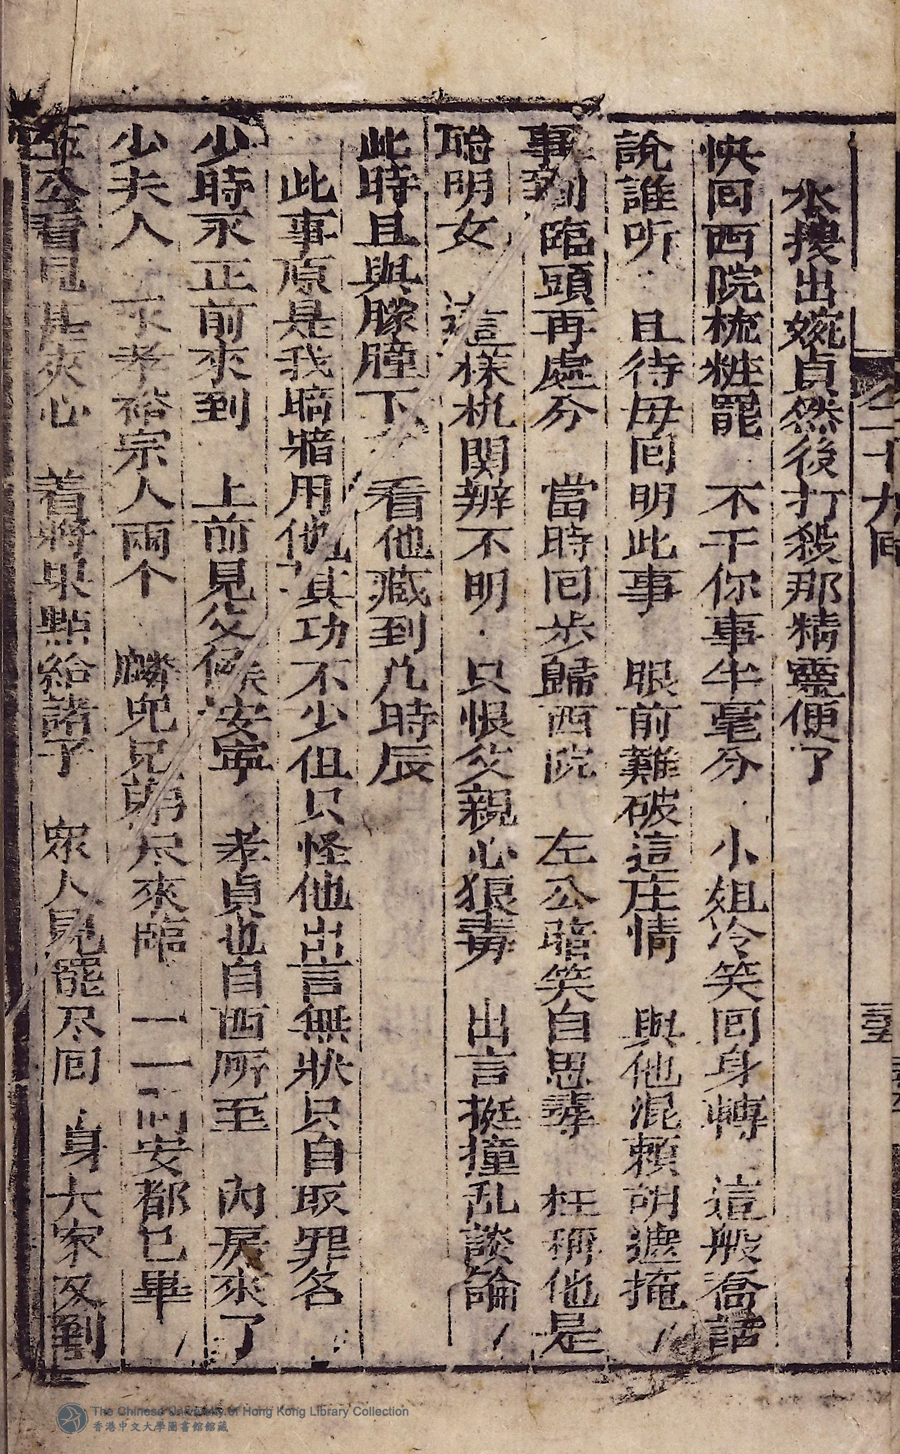 水擾出婉貞然後打殺那精靈便了
快囘西院梳粧罷 不干你事半毫分 小姐冷笑囘身轉 這般喬話
說誰听 且待毋囘明此事 眼前難破這庄情 與他混賴胡遮掩
事到臨頭再處分 當時囘步歸西院 左公暗笑自思 枉稱他是
聰明女 這樣机関辨不明 只恨父親心狼毒 出言挺撞乱談論
此時且與朦朣下 看他藏到几時辰
此事原是我暗用他其功不少但只怪他出言無狀只自取罪名
少時永正前來到 上前見父候安寧 孝貞也自西厢至 內房來了
少夫人 永孝裕宗人兩个 麟兜兄弟尽來臨 一一問安都已畢
左公看見是夾心 着將果點給諸子 眾人見罷尽囘身 大家又到
二十九回
The Chinese University of Hong Kong Library Collection
香港中文大學圖書館館藏